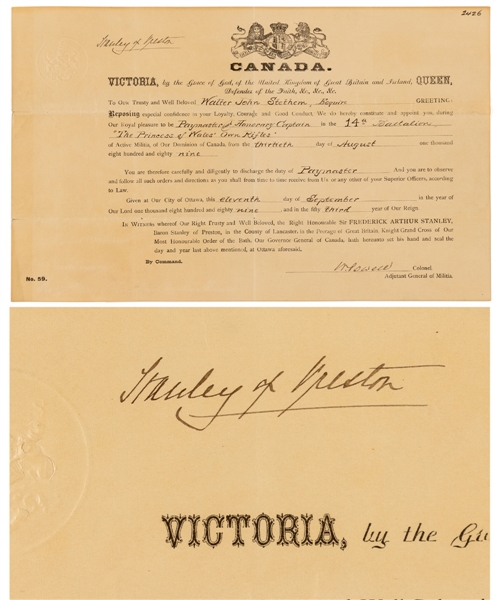 2426
Stanley of Preston
CANADA.
VICTORIA, by the Grace of God, of the United Kingdom of Great Britain and Ireland, QUEEN,
Defender of the Faith, &c., &c., &c.
To Our Trusty and Well Beloved Walter John Stethem, Esquire GREETING:
Reposing especial confidence in your Loyalty, Courage and Good Conduct, We do hereby constitute and appoint you, during
Our Royal pleasure to be Paymaster & Honorary Captain in the 14th Battalion
"The Princess of Wales' Own Rifles"
of Active Militia, of Our Dominion of Canada, from the thirtieth day of August one thousand
eight hundred and eighty nine
You are therefore carefully and diligently to discharge the duty of Paymaster And you are to observe
and follow all such orders and directions as you shall from time to time receive from Us or any other of your Superior Officers, according
to Law.
Given at Our City of Ottawa, this eleventh day of September in the year of
Our Lord one thousand eight hundred and eighty nine and in the fifty third year of Our Reign.
In Witness whereof Our Right Trusty and Well Beloved, the Right Honourable Sir FREDERICK ARTHUR STANLEY,
Baron Stanley of Preston, in the County of Lancaster, in the Peerage of Great Britain, Knight Grand Cross of Our
Most Honourable Order of the Bath, Our Governor General of Canada, hath hereunto set his hand and seal the
day and year last above mentioned, at Ottawa aforesaid.
By Command.
W Powell Colonel.
Adjutant General of Militia.
No. 59.
Stanley of Preston
VICTORIA, by the Gr